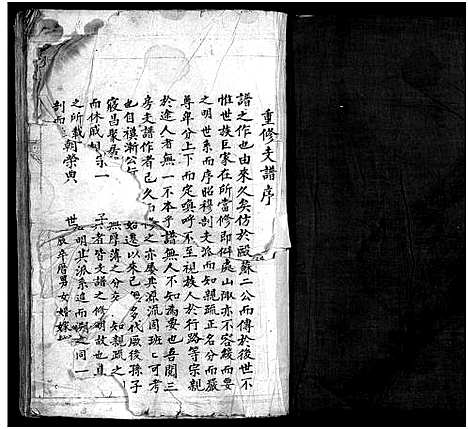 重修支譜序
譜之作也由來久矣仿於歐蘇二公而傳於後世不
惟世族巨家在所當修即僻處山陬亦不容緩而要
之明世系而序昭穆别支派而知親疏正名分而嚴
尊卑分上下而定喚呼不至視族人於行路等宗親
於途人者無一不本乎譜無人不知為要也吾閱三
房支譜作者已久修之亦屢其源流固班班可考
也自禩漸公行始遠以來已無多代厥後孫子
寢昌聚居無厚薄之分交知親疏之
而休戚相一其者皆支譜之修明故也且
之所載世明其派系追而溯之同一
别而朝榮典庚卒曆男女婚嫁